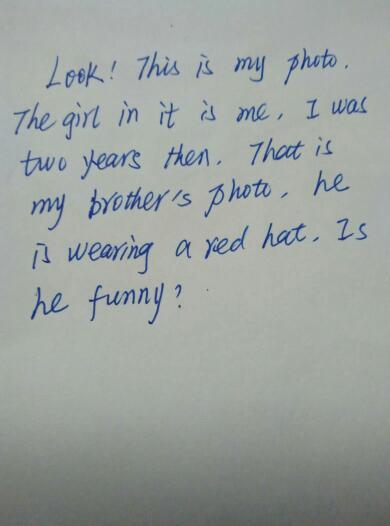 Look! This is my photo.
The girl in it is me, I was
two years then. That is
my brother's photo, he
is wearing a red hat. Is
he funny?